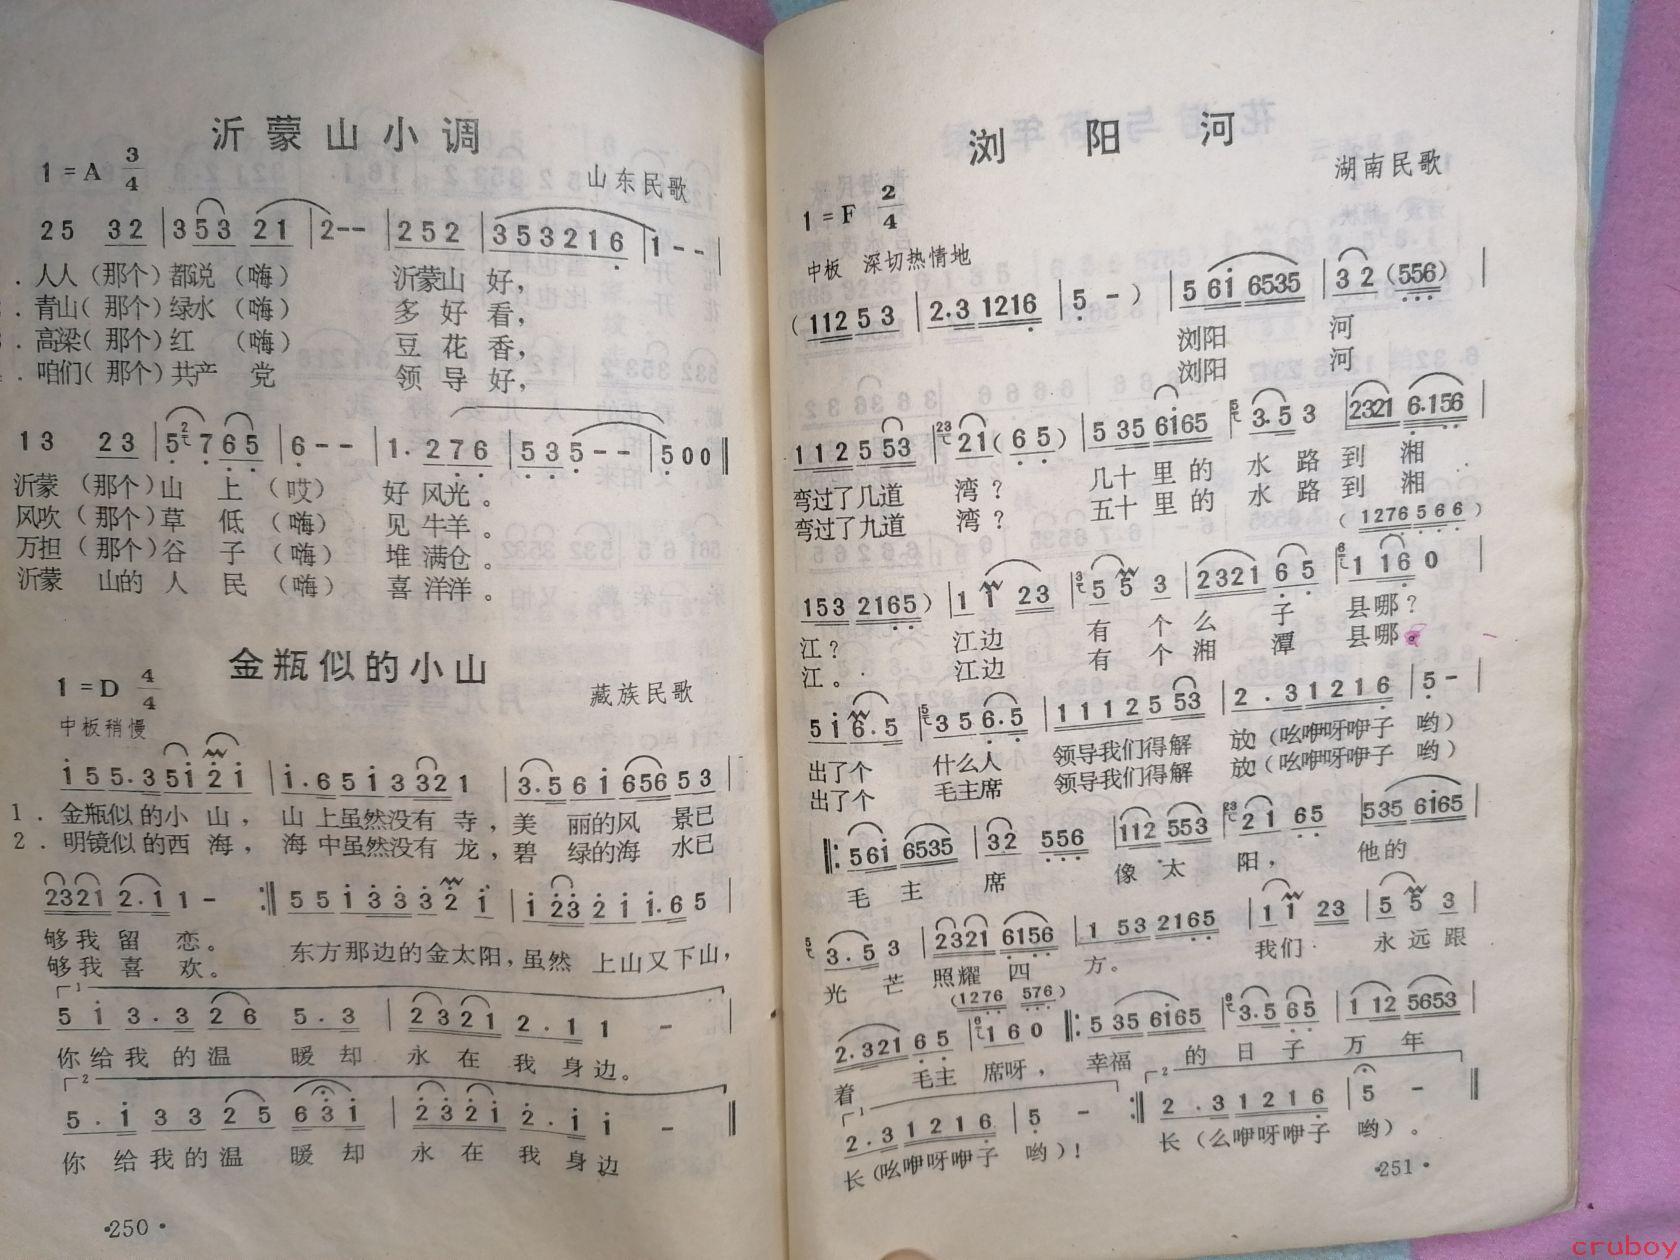 沂蒙山小调
1=A 3/4
山东民歌
25 32 | 353 21 | 2-- | 252 | 353216 | 1-- |
人人(那个)都说(嗨) 沂蒙山好,
青山(那个)绿水(嗨) 多好看,
高梁(那个)红(嗨) 豆花香,
咱们(那个)共产党 领导好,
13 23 | 5 2 765 | 6-- | 1. 276 | 535-- | 500 ‖
沂蒙(那个)山上(哎) 好风光。
风吹(那个)草低(嗨) 见牛羊。
万担(那个)谷子(嗨) 堆满仓。
沂蒙山的人民(嗨) 喜洋洋。
金瓶似的小山
1=D 4/4
藏族民歌
中板稍慢
155.35i2i | i.65i3321 | 3.56i65653 |
1.金瓶似的小山,山上虽然没有寺,美丽的风景已
2.明镜似的西海,海中虽然没有龙,碧绿的海水已
2321 2.11- :‖ 55i3332i | i232ii.65 |
够我留恋。 东方那边的金太阳,虽然上山又下山,
够我喜欢。
1
5i 3.326 5.3 | 2321 2.11 - |
你给我的温暖却永在我身边。
2
5.i 3325 63i | 232i 2.ii - ‖
你给我的温暖却永在我身边
·250·
浏阳河
1=F 2/4
湖南民歌
中板 深切热情地
(11253 | 2.31216 | 5-) | 56i6535 | 32(556) |
浏阳河
浏阳河
112553 | 23 21(65) | 5356i65 | 5 3.53 | 2321 6.156 |
弯过了几道湾? 几十里的水路到湘
弯过了九道湾? 五十里的水路到湘
(1276566)
153 2165) | 11 23 | 3 55 3 | 2321 65 | 6 1160 |
江? 江边有个么子县哪?
江。 江边有个湘潭县哪。
5i6.5 | 5 356.5 | 1112553 | 2.31216 | 5- |
出了个什么人 领导我们得解放(吆咿呀咿子哟)
出了个毛主席 领导我们得解放(吆咿呀咿子哟)
‖: 56i 6535 | 32 556 | 112 553 | 23 21 65 | 535 6i65 |
毛主席像太阳,他的
5 3.53 | 2321 6156 | 1 53 2165 | 11 23 | 55 3 |
光芒照耀四方。 我们永远跟
(1276 576)
2.32165 | 6 160 ‖: 5356i65 | 6 3.565 | 112 5653 |
着毛主席呀,幸福的日子万年
1 2
2.31216 | 5- :‖ 2.31216 | 5 - ‖
长(吆咿呀咿子哟)! 长(么咿呀咿子哟)。
·251·
cruboy